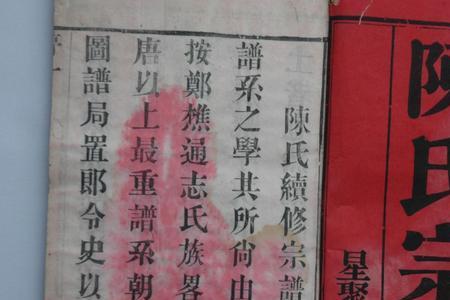 陳氏宗
星聚
陳氏續修宗譜
譜系之學其所尙由
按鄭樵通志氏族畧
唐以上最重譜系朝
圖譜局置郎令史以